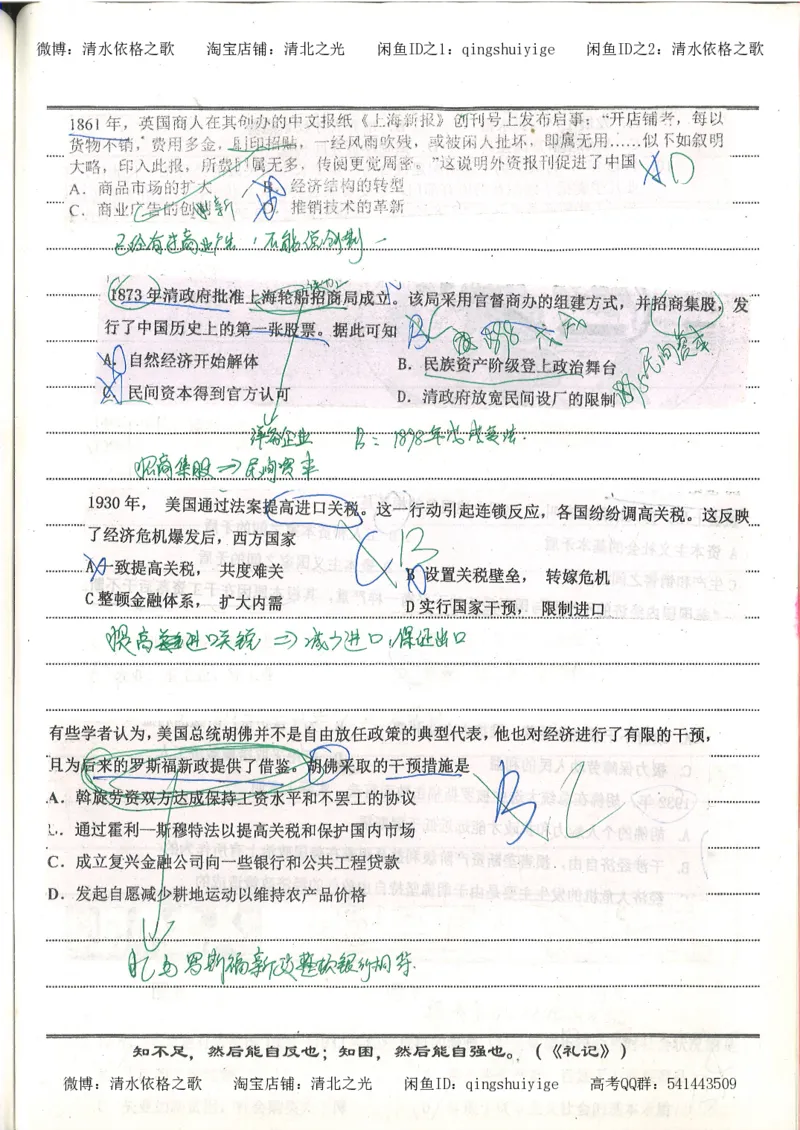 微博：清水依格之歌 淘宝店铺：清北之光 闲鱼ID之1：qingshuiyige 闲鱼ID之2：清水依格之歌
1861年，英国商人在其创办的中文报纸《上海新报》创刊号上发布启事：“开店铺者，每以
货物不销，费用多金，刷印招贴，一经风雨吹残，或被闲人扯坏，即属无用……似不如叙明
大略，印入此报，所费属无多，传阅更觉周密。”这说明外资报刊促进了中国 D
A．商品市场的扩大 B．经济结构的转型
C．商业广告的创新 D．推销技术的革新
已经有过商业广告，不能说创新
1873年清政府批准上海轮船招商局成立。该局采用官督商办的组建方式，并招商集股，发
行了中国历史上的第一张股票。据此可知 B
A．自然经济开始解体 B．民族资产阶级登上政治舞台
C．民间资本得到官方认可 D．清政府放宽民间设厂的限制
洋务企业 B：1898年戊戌变法.
招商集股⇒民间资本
1930年， 美国通过法案提高进口关税。这一行动引起连锁反应，各国纷纷调高关税。这反映
了经济危机爆发后，西方国家 B
A一致提高关税， 共度难关 B 设置关税壁垒， 转嫁危机
C整顿金融体系， 扩大内需 D实行国家干预， 限制进口
提高进口关税 ⇒减少进口，保证出口
有些学者认为，美国总统胡佛并不是自由放任政策的典型代表，他也对经济进行了有限的干预，
且为后来的罗斯福新政提供了借鉴。胡佛采取的干预措施是 B C
A．斡旋劳资双方达成保持工资水平和不罢工的协议
．通过霍利—斯穆特法以提高关税和保护国内市场
C．成立复兴金融公司向一些银行和公共工程贷款
D．发起自愿减少耕地运动以维持农产品价格
与罗斯福新政整顿银行相符.
知不足，然后能自反也；知困，然后能自强也。（《礼记》）
微博：清水依格之歌 淘宝店铺：清北之光 闲鱼ID：qingshuiyige 高考QQ群：541443509